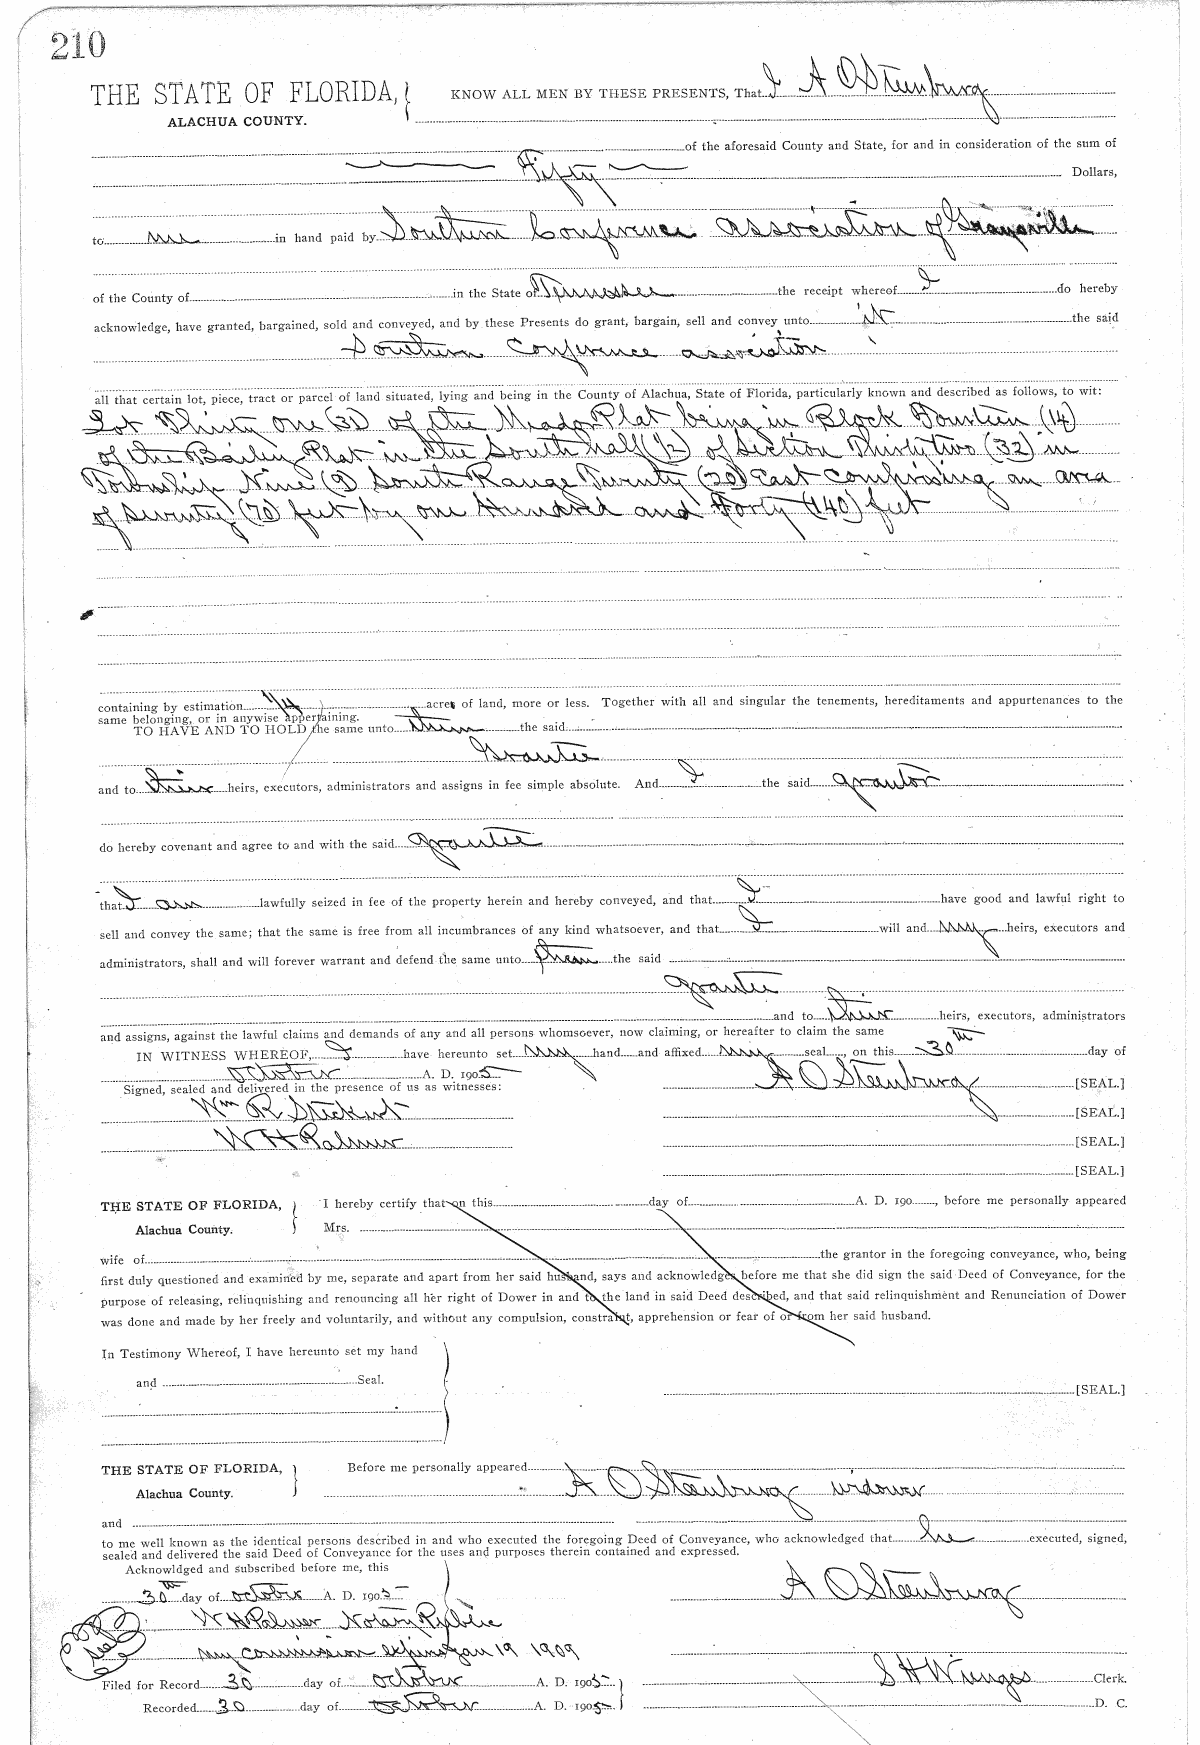 210
THE STATE OF FLORIDA, KNOW ALL MEN BY THESE PRESENTS, That I A O Steenburg
ALACHUA COUNTY.
of the aforesaid County and State, for and in consideration of the sum of
Fifty Dollars,
to me in hand paid by Southern Conference association of Graysville
of the County of in the State of Tennessee the receipt whereof I do hereby
acknowledge, have granted, bargained, sold and conveyed, and by these Presents do grant, bargain, sell and convey unto it the said
Southern Conference association
all that certain lot, piece, tract or parcel of land situated, lying and being in the County of Alachua, State of Florida, particularly known and described as follows, to wit:
Lot Thirty one (31) of the Plat being in Block Fourteen (14)
of the Bailey Plat in the South half (1/2) of Section Thirty two (32) in
Township Nine (9) South Range Twenty (20) East comprising an area
of seventy (70) feet by one Hundred and Forty (140) feet
containing by estimation 1/4 acres of land, more or less. Together with all and singular the tenements, hereditaments and appurtenances to the
same belonging, or in anywise appertaining.
TO HAVE AND TO HOLD the same unto them the said
Grantee
and to their heirs, executors, administrators and assigns in fee simple absolute. And I the said grantor
do hereby covenant and agree to and with the said grantee
that I am lawfully seized in fee of the property herein and hereby conveyed, and that I have good and lawful right to
sell and convey the same; that the same is free from all incumbrances of any kind whatsoever, and that I will and my heirs, executors and
administrators, shall and will forever warrant and defend the same unto them the said
grantee
and to their heirs, executors, administrators
and assigns, against the lawful claims and demands of any and all persons whomsoever, now claiming, or hereafter to claim the same
IN WITNESS WHEREOF, I have hereunto set my hand and affixed my seal, on this 30th day of
October A. D. 1905
Signed, sealed and delivered in the presence of us as witnesses: A O Steenburg [SEAL.]
Wm R [SEAL.]
W H Palmer [SEAL.]
[SEAL.]
THE STATE OF FLORIDA, I hereby certify that on this day of A. D. 190 , before me personally appeared
Alachua County. Mrs.
wife of the grantor in the foregoing conveyance, who, being
first duly questioned and examined by me, separate and apart from her said husband, says and acknowledges before me that she did sign the said Deed of Conveyance, for the
purpose of releasing, relinquishing and renouncing all her right of Dower in and to the land in said Deed described, and that said relinquishment and Renunciation of Dower
was done and made by her freely and voluntarily, and without any compulsion, constraint, apprehension or fear of or from her said husband.
In Testimony Whereof, I have hereunto set my hand
and Seal.
[SEAL.]
THE STATE OF FLORIDA, Before me personally appeared
Alachua County. A O Steenburg widower
and
to me well known as the identical persons described in and who executed the foregoing Deed of Conveyance, who acknowledged that he executed, signed,
sealed and delivered the said Deed of Conveyance for the uses and purposes therein contained and expressed.
Acknowldged and subscribed before me, this
30th day of October A. D. 1905 A O Steenburg
W H Palmer Notary Public
seal
my commission expires Jan 19 1909
Filed for Record 30 day of October A. D. 1905 S H Wienges Clerk.
Recorded 30 day of October A. D. 1905 D. C.